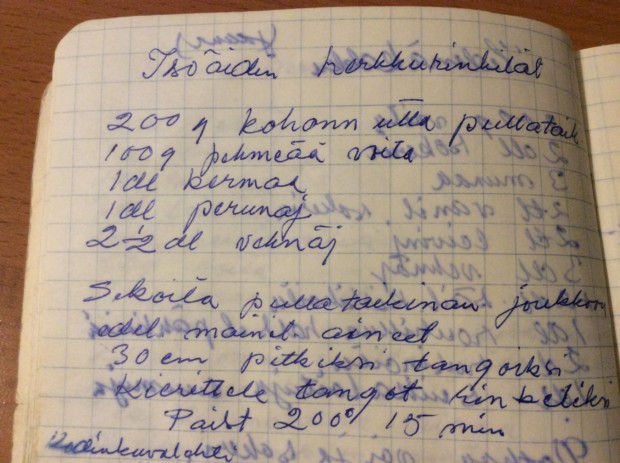 Isoäidin herkkurinkilät
200 g kohonnutta pullataik
100g pehmeää voita
1dl kermaa
1dl perunaj
2½ dl vehnäj
Sekoita pullataikinan joukkoon
edel mainit aineet
30 cm pitkiksi tangoiksi
Kierittele tangot rinkeliksi
Paist 200° 15 min